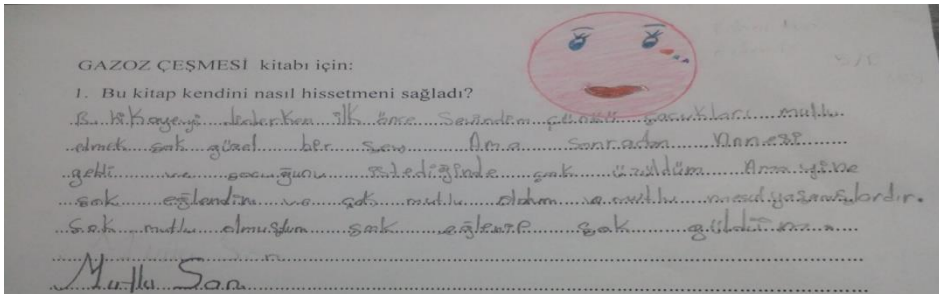 GAZOZ ÇEŞMESİ kitabı için:
1. Bu kitap kendini nasıl hissetmeni sağladı?
Bu hikayeyi dinlerken ilk önce Sevindim çünkü çocukları mutlu
etmek çok güzel bir şey Ama sonradan Annesi
geldi ve çocuğunu istediğinde çok üzüldüm Ama yine
çok eğlendim ve çok mutlu oldum ve mutlu mesut yaşamışlardır.
Çok mutlu olmuştum çok eğlenip çok güldüm
Mutlu Son